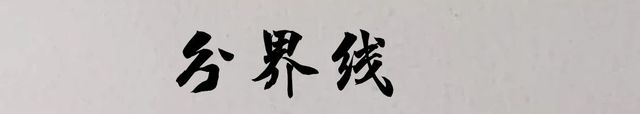 分界线